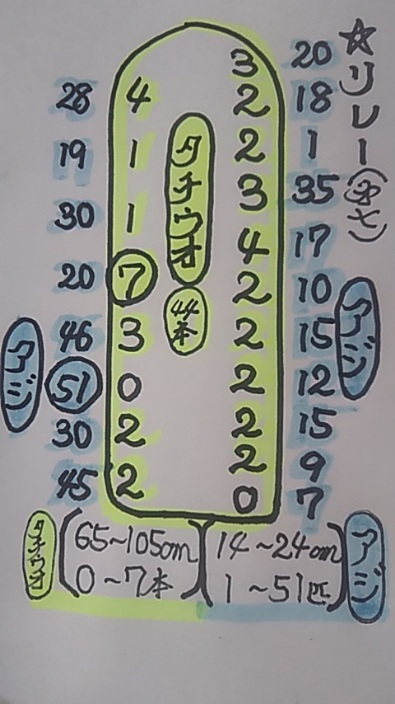 ☆リレー
20
18
1
35
17
10
15
12
15
9
7
アジ
3
2
2
3
4
2
2
2
2
2
0
タチウオ
44本
4
1
1
7
3
0
2
2
28
19
30
20
46
51
30
45
アジ
タチウオ
65~105cm
0~7本
14~24cm
1~51匹
アジ